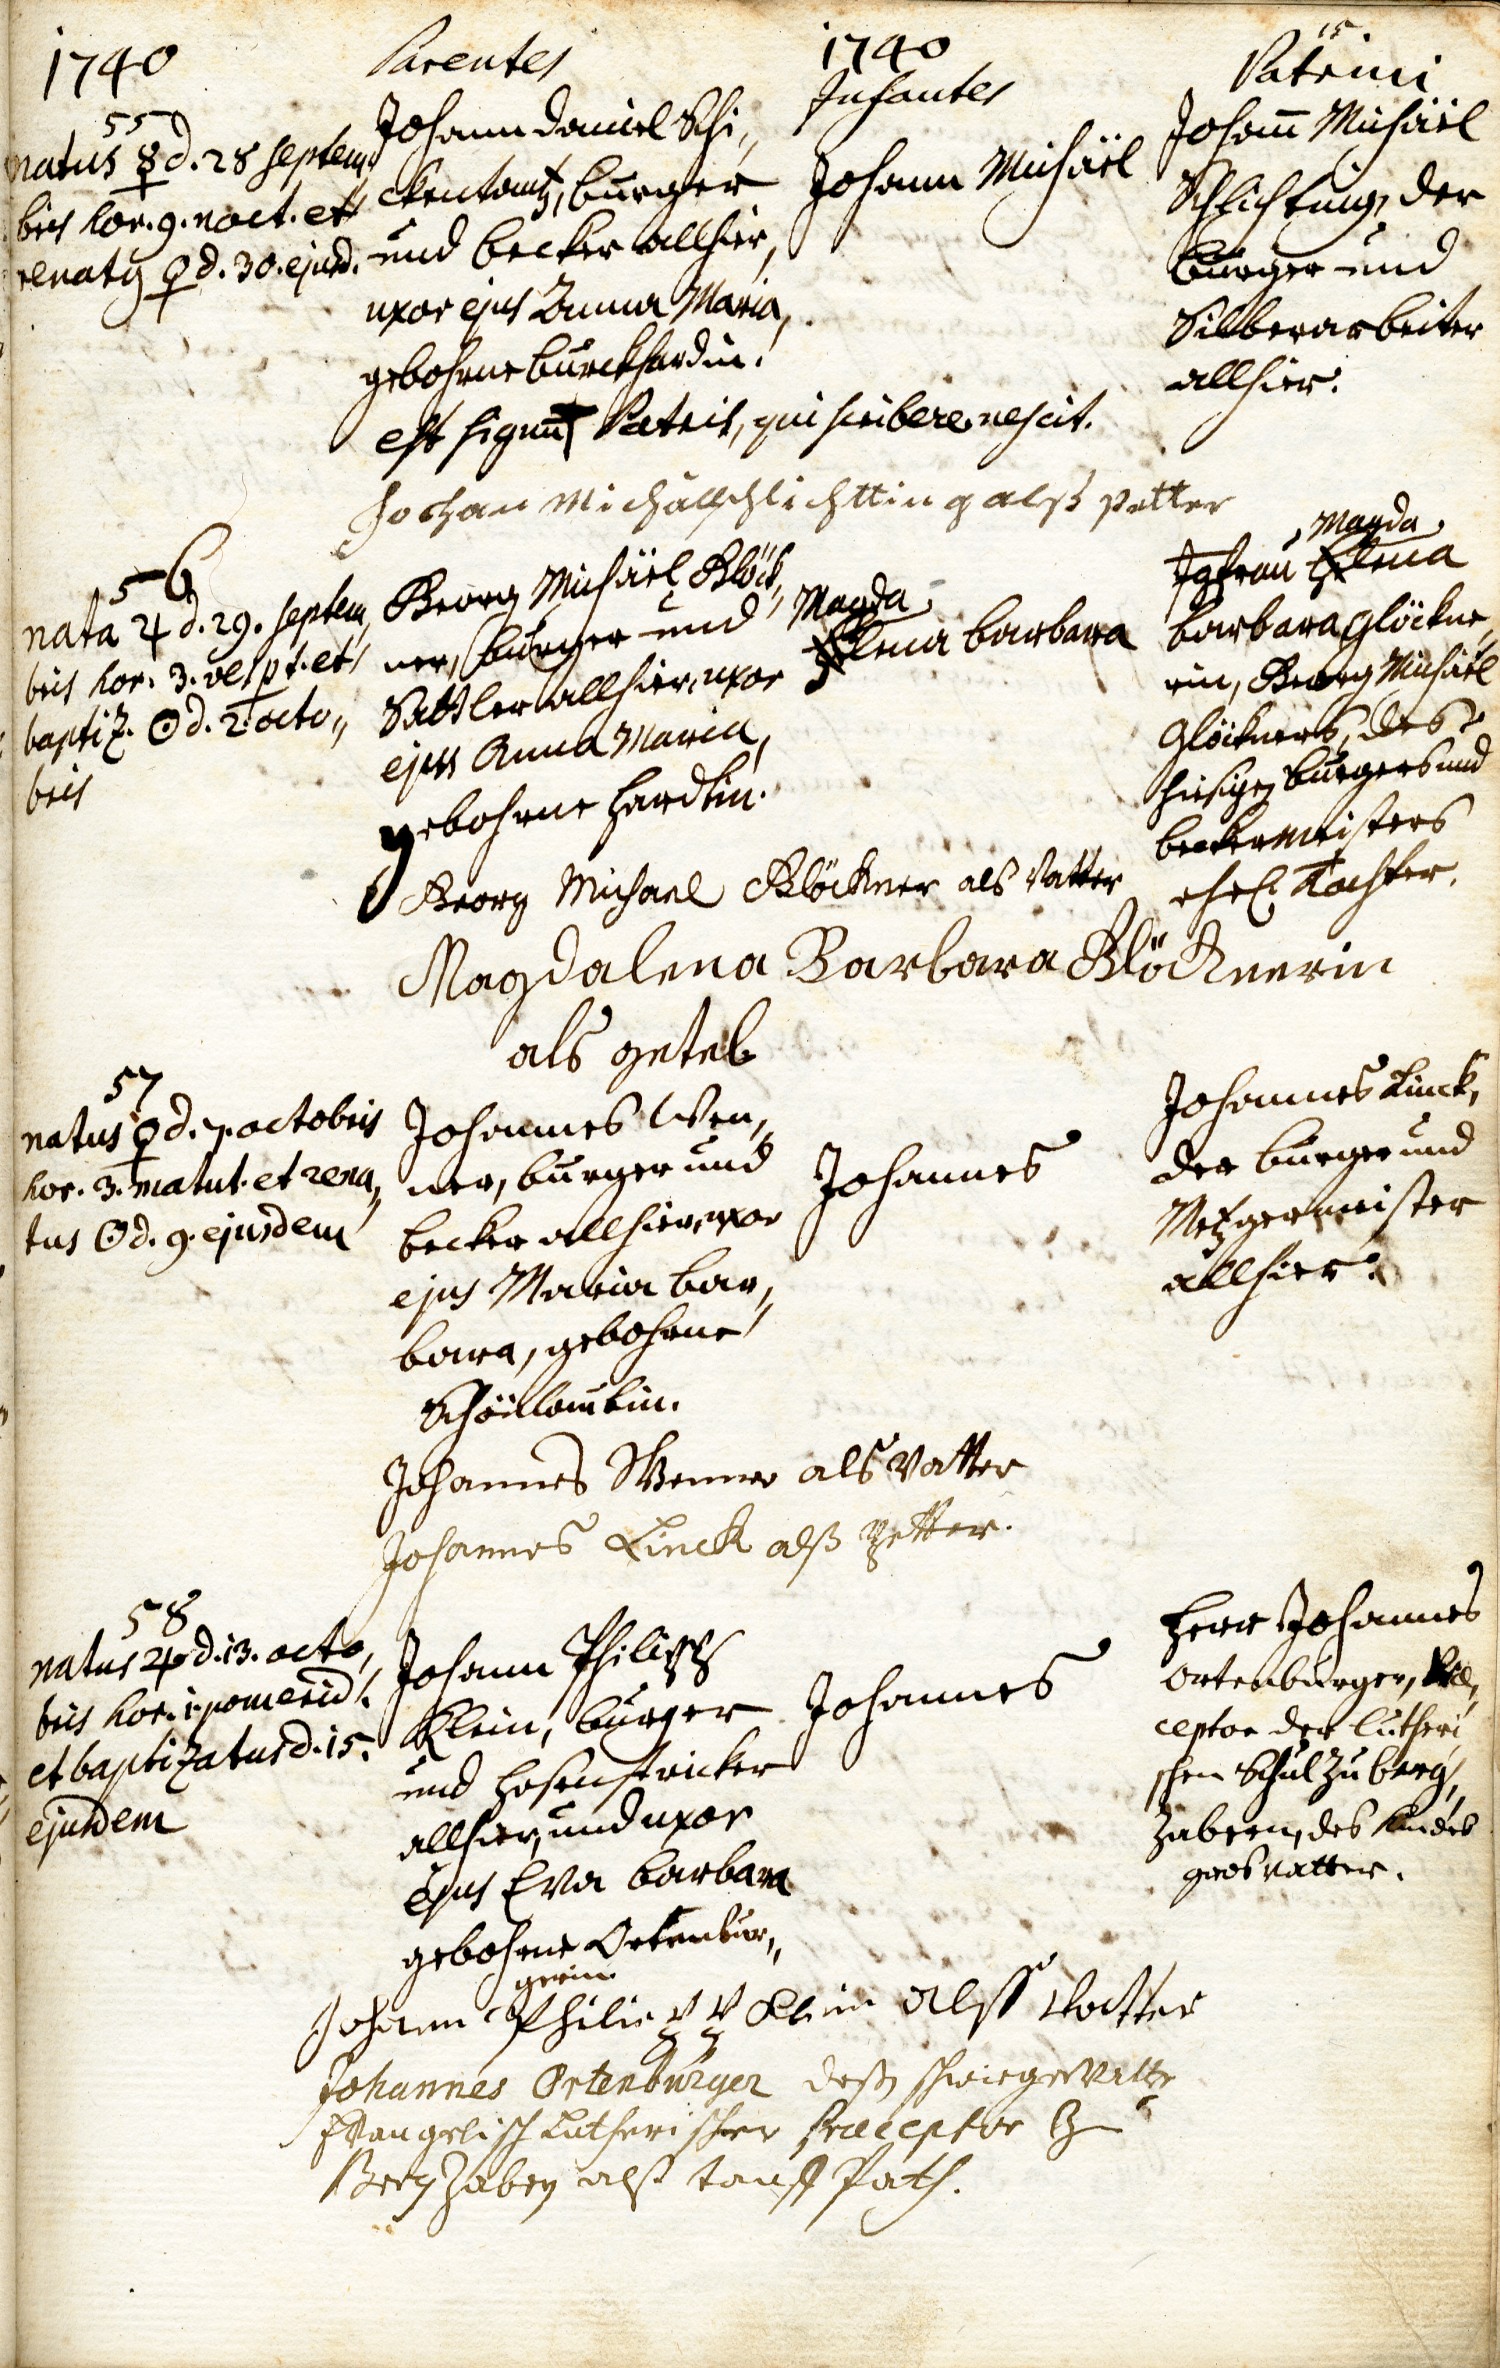 15
1740
Parentes
1740
Infantes
Patrini
55
natus ☿ d. 28 septem„
bris hor. 9. noct. et
renatq ♀ d. 30. ejusd.
Johann Daniel Schi„
ckentantz, burger
und becker allhier,
uxor ejus Anna Maria,
gebohrne Burckhardin.
Johann Michäel
Johann̄ Michäel
Schlichting, der
burger und
Silberarbeiter
allhier.
est signū † Patris, qui scribere nescit.
Johan Michäll schlichtting alß petter
56
nata ♃ d. 29. septem„
bris hor. 3. vespt. et
baptiz. ☉ d. 2. octo„
bris
Georg Michäel Glöck„
ner, burger und
Sattler allhier, uxor
ejus Anna Maria,
gebohrne Hardtin.
Magda
lena barbara
Magda
Jgfrau lena
barbara glöckne„
rin, Georg Michäel
Glöckners, des
hiesigen burgers und
beckermeisters
ehel. Tochter.
Georg Michael Glöckner als Vatter
Magdalena Barbara Glöcknerin
als getel
57
natus ♀ d. 7. octobris
hor. 3. matut. et rena„
tus ☉ d. 9. ejusdem
Johannes Wen„
ner, burger und
becker allhier, uxor
ejus Maria bar„
bara, gebohrne
Schönlaubin.
Johannes
Johannes Linck,
der burger und
Metzgermeister
allhier.
Johannes Wenner als Vatter
Johannes Linck alß Petter.
58
natus ♃ d. 13. octo„
bris hor. 1. pomerid.
et baptizatus d. 15.
ejusdem
Johann Philipp
Klein, burger
und hosenstricker
allhier, und uxor
ejus Eva barbara
gebohrne Ortenbur„
gerin
Johannes
Herr Johannes
Ortenburger, Præ„
ceptor der lutheri
schen Schul zu berg„
zabern, des Kindes
grosvatter.
Johann Philipp Klein alss Vatter
Johannes Ortenburger dessen schwiegervatter
Evangelisch Lutherischer Præceptor zu
Bergzabern alß tauff Path.